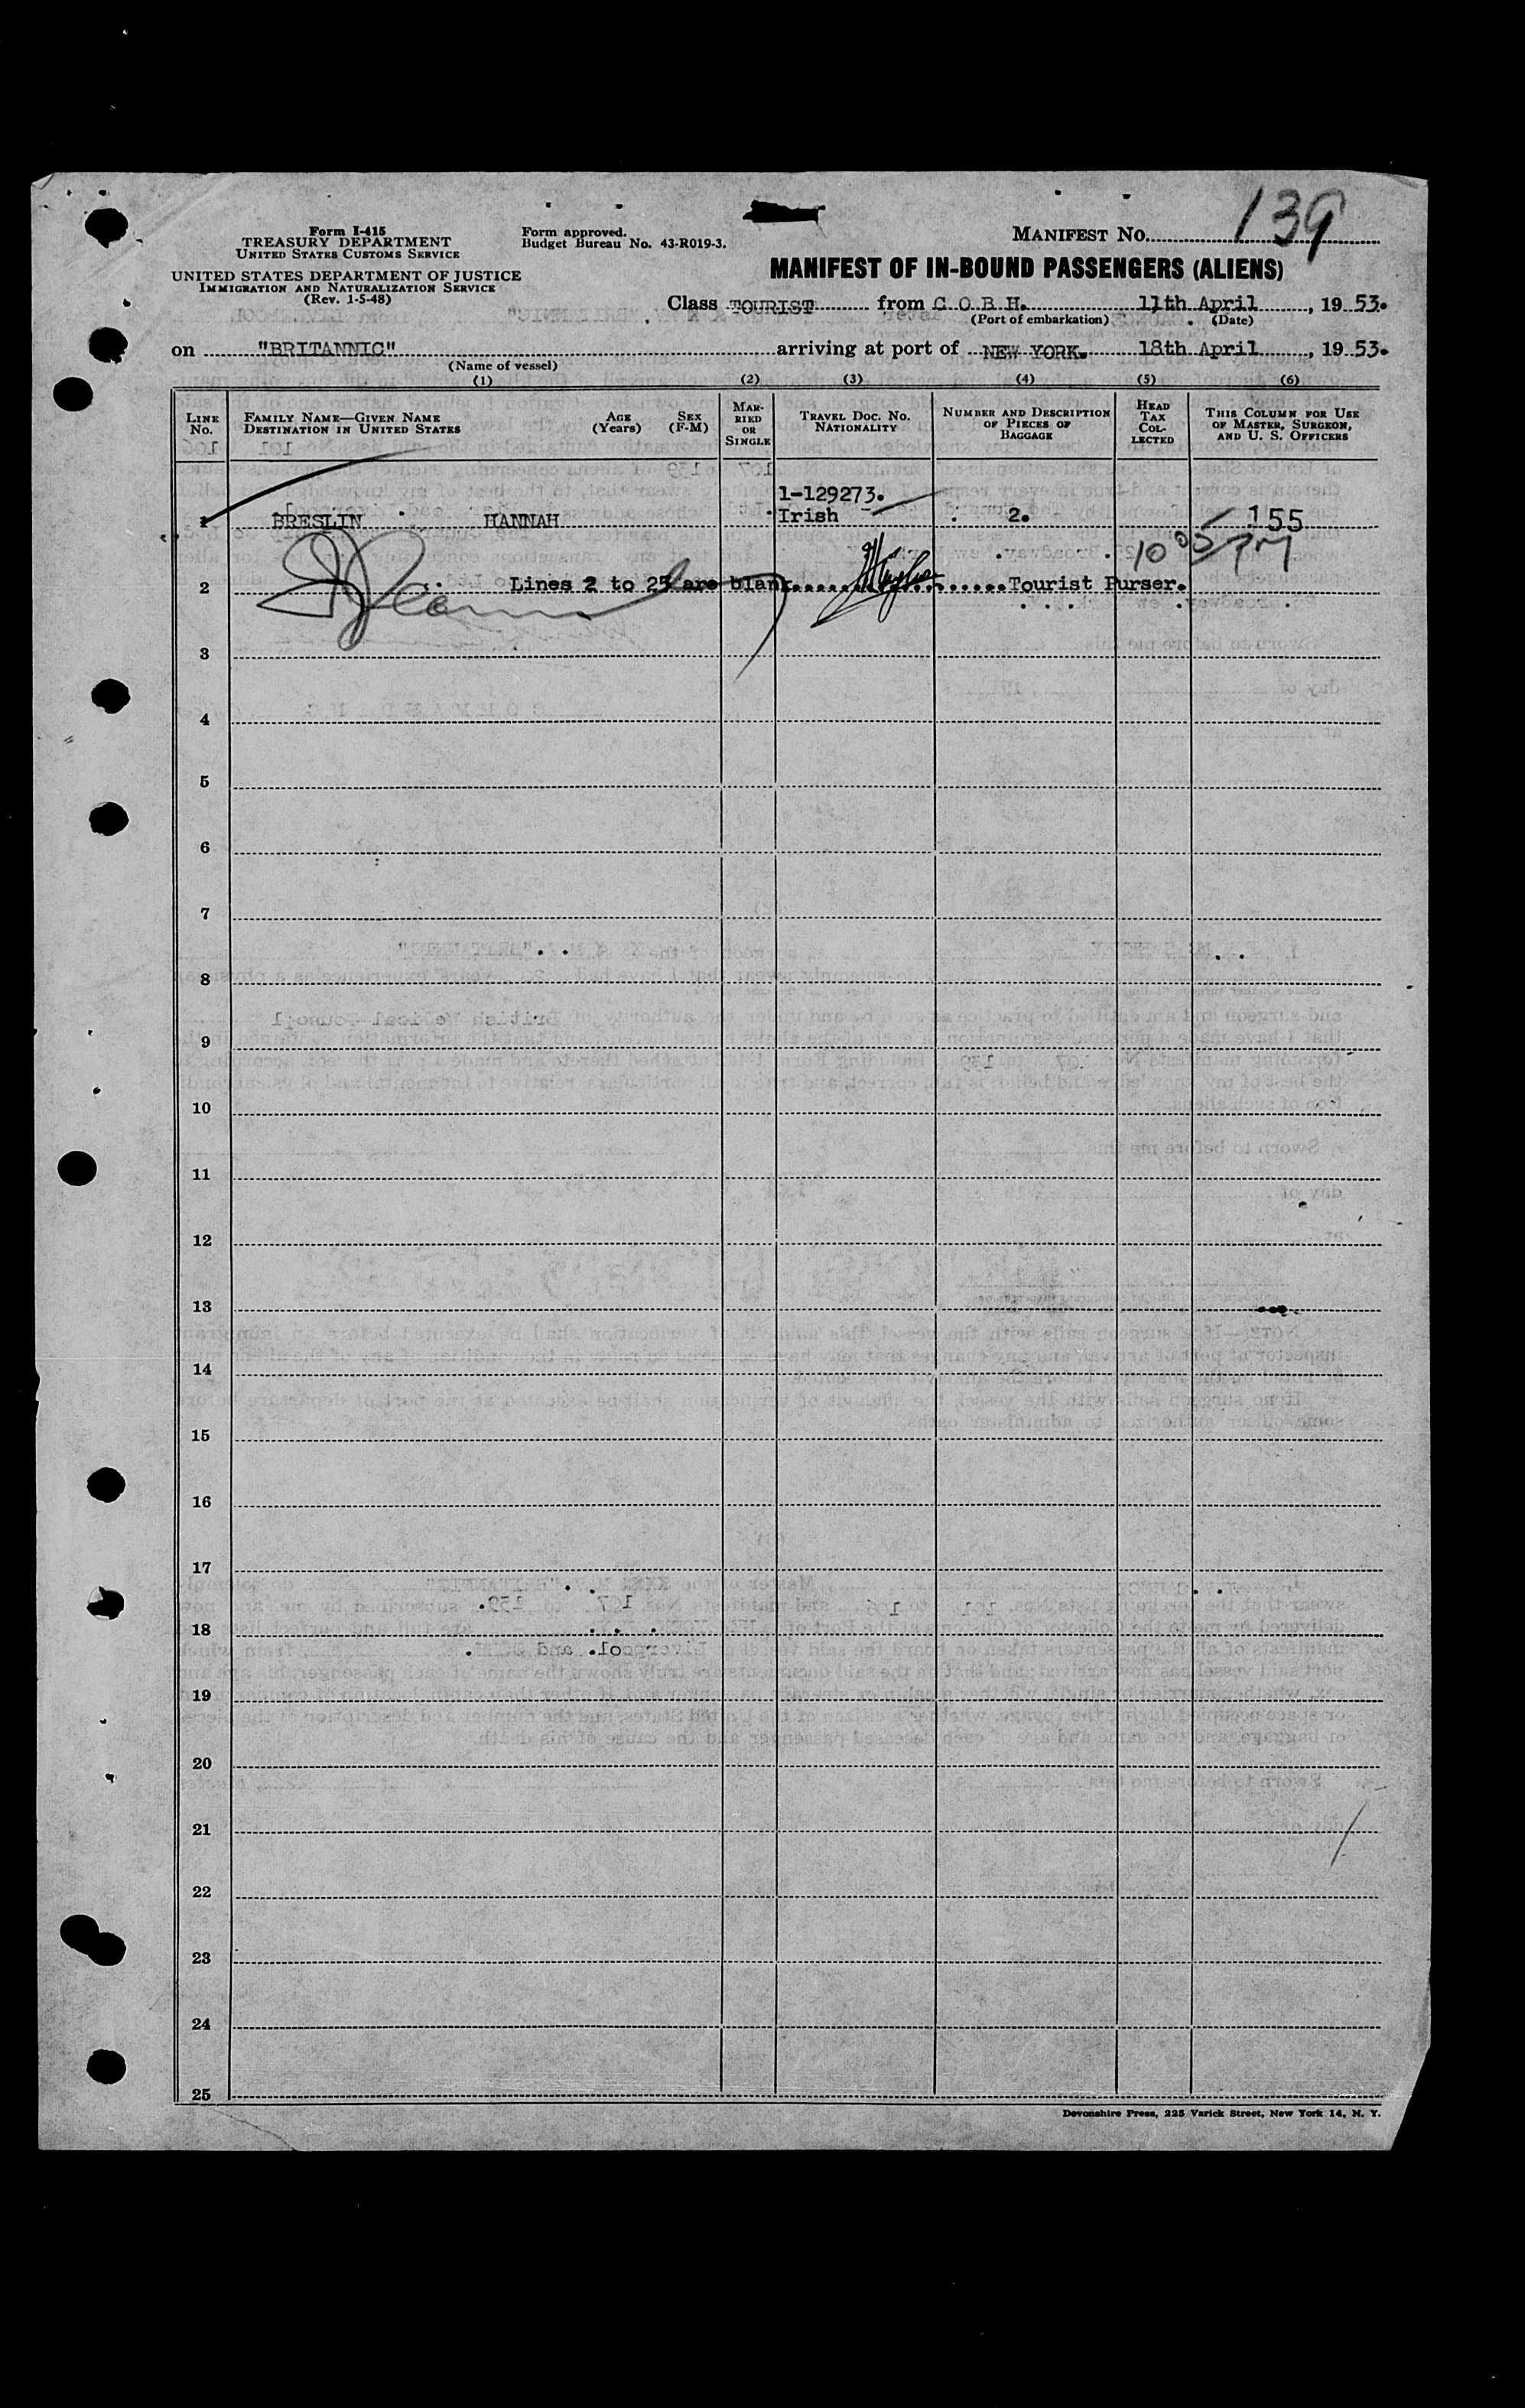 139
Form I-415
TREASURY DEPARTMENT
UNITED STATES CUSTOMS SERVICE
UNITED STATES DEPARTMENT OF JUSTICE
IMMIGRATION AND NATURALIZATION SERVICE
(Rev. 1-5-48)
Form approved.
Budget Bureau No. 43-R019-3.
MANIFEST NO.
MANIFEST OF IN-BOUND PASSENGERS (ALIENS)
Class TOURIST from C.O.B.H. 11th April, 19 53.
(Port of embarkation) (Date)
on "BRITANNIC" arriving at port of NEW YORK. 18th April, 19 53.
(Name of vessel)
(1) (2) (3) (4) (5) (6)
LINE NO.
FAMILY NAME—GIVEN NAME
DESTINATION IN UNITED STATES
AGE (YEARS)
SEX (F-M)
MARRIED OR SINGLE
TRAVEL DOC. NO.
NATIONALITY
NUMBER AND DESCRIPTION OF PIECES OF BAGGAGE
HEAD TAX COLLECTED
THIS COLUMN FOR USE OF MASTER, SURGEON, AND U. S. OFFICERS
1-129273.
1 BRESLIN HANNAH Irish 2. 155
10 00 PM
2 Lines 2 to 25 are blank. Tourist Purser.
3
4
5
6
7
8
9
10
11
12
13
14
15
16
17
18
19
20
21
22
23
24
25
Devonshire Press, 225 Varick Street, New York 14, N. Y.